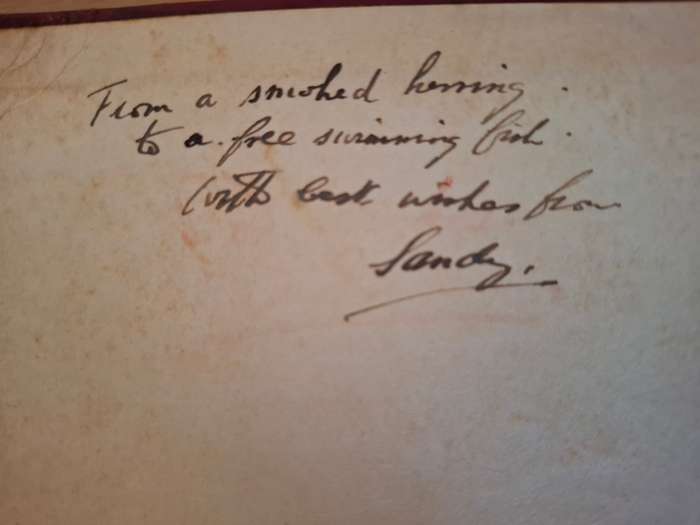 From a smoked herring.
to a free swimming fish.
With best wishes from
Sandy.